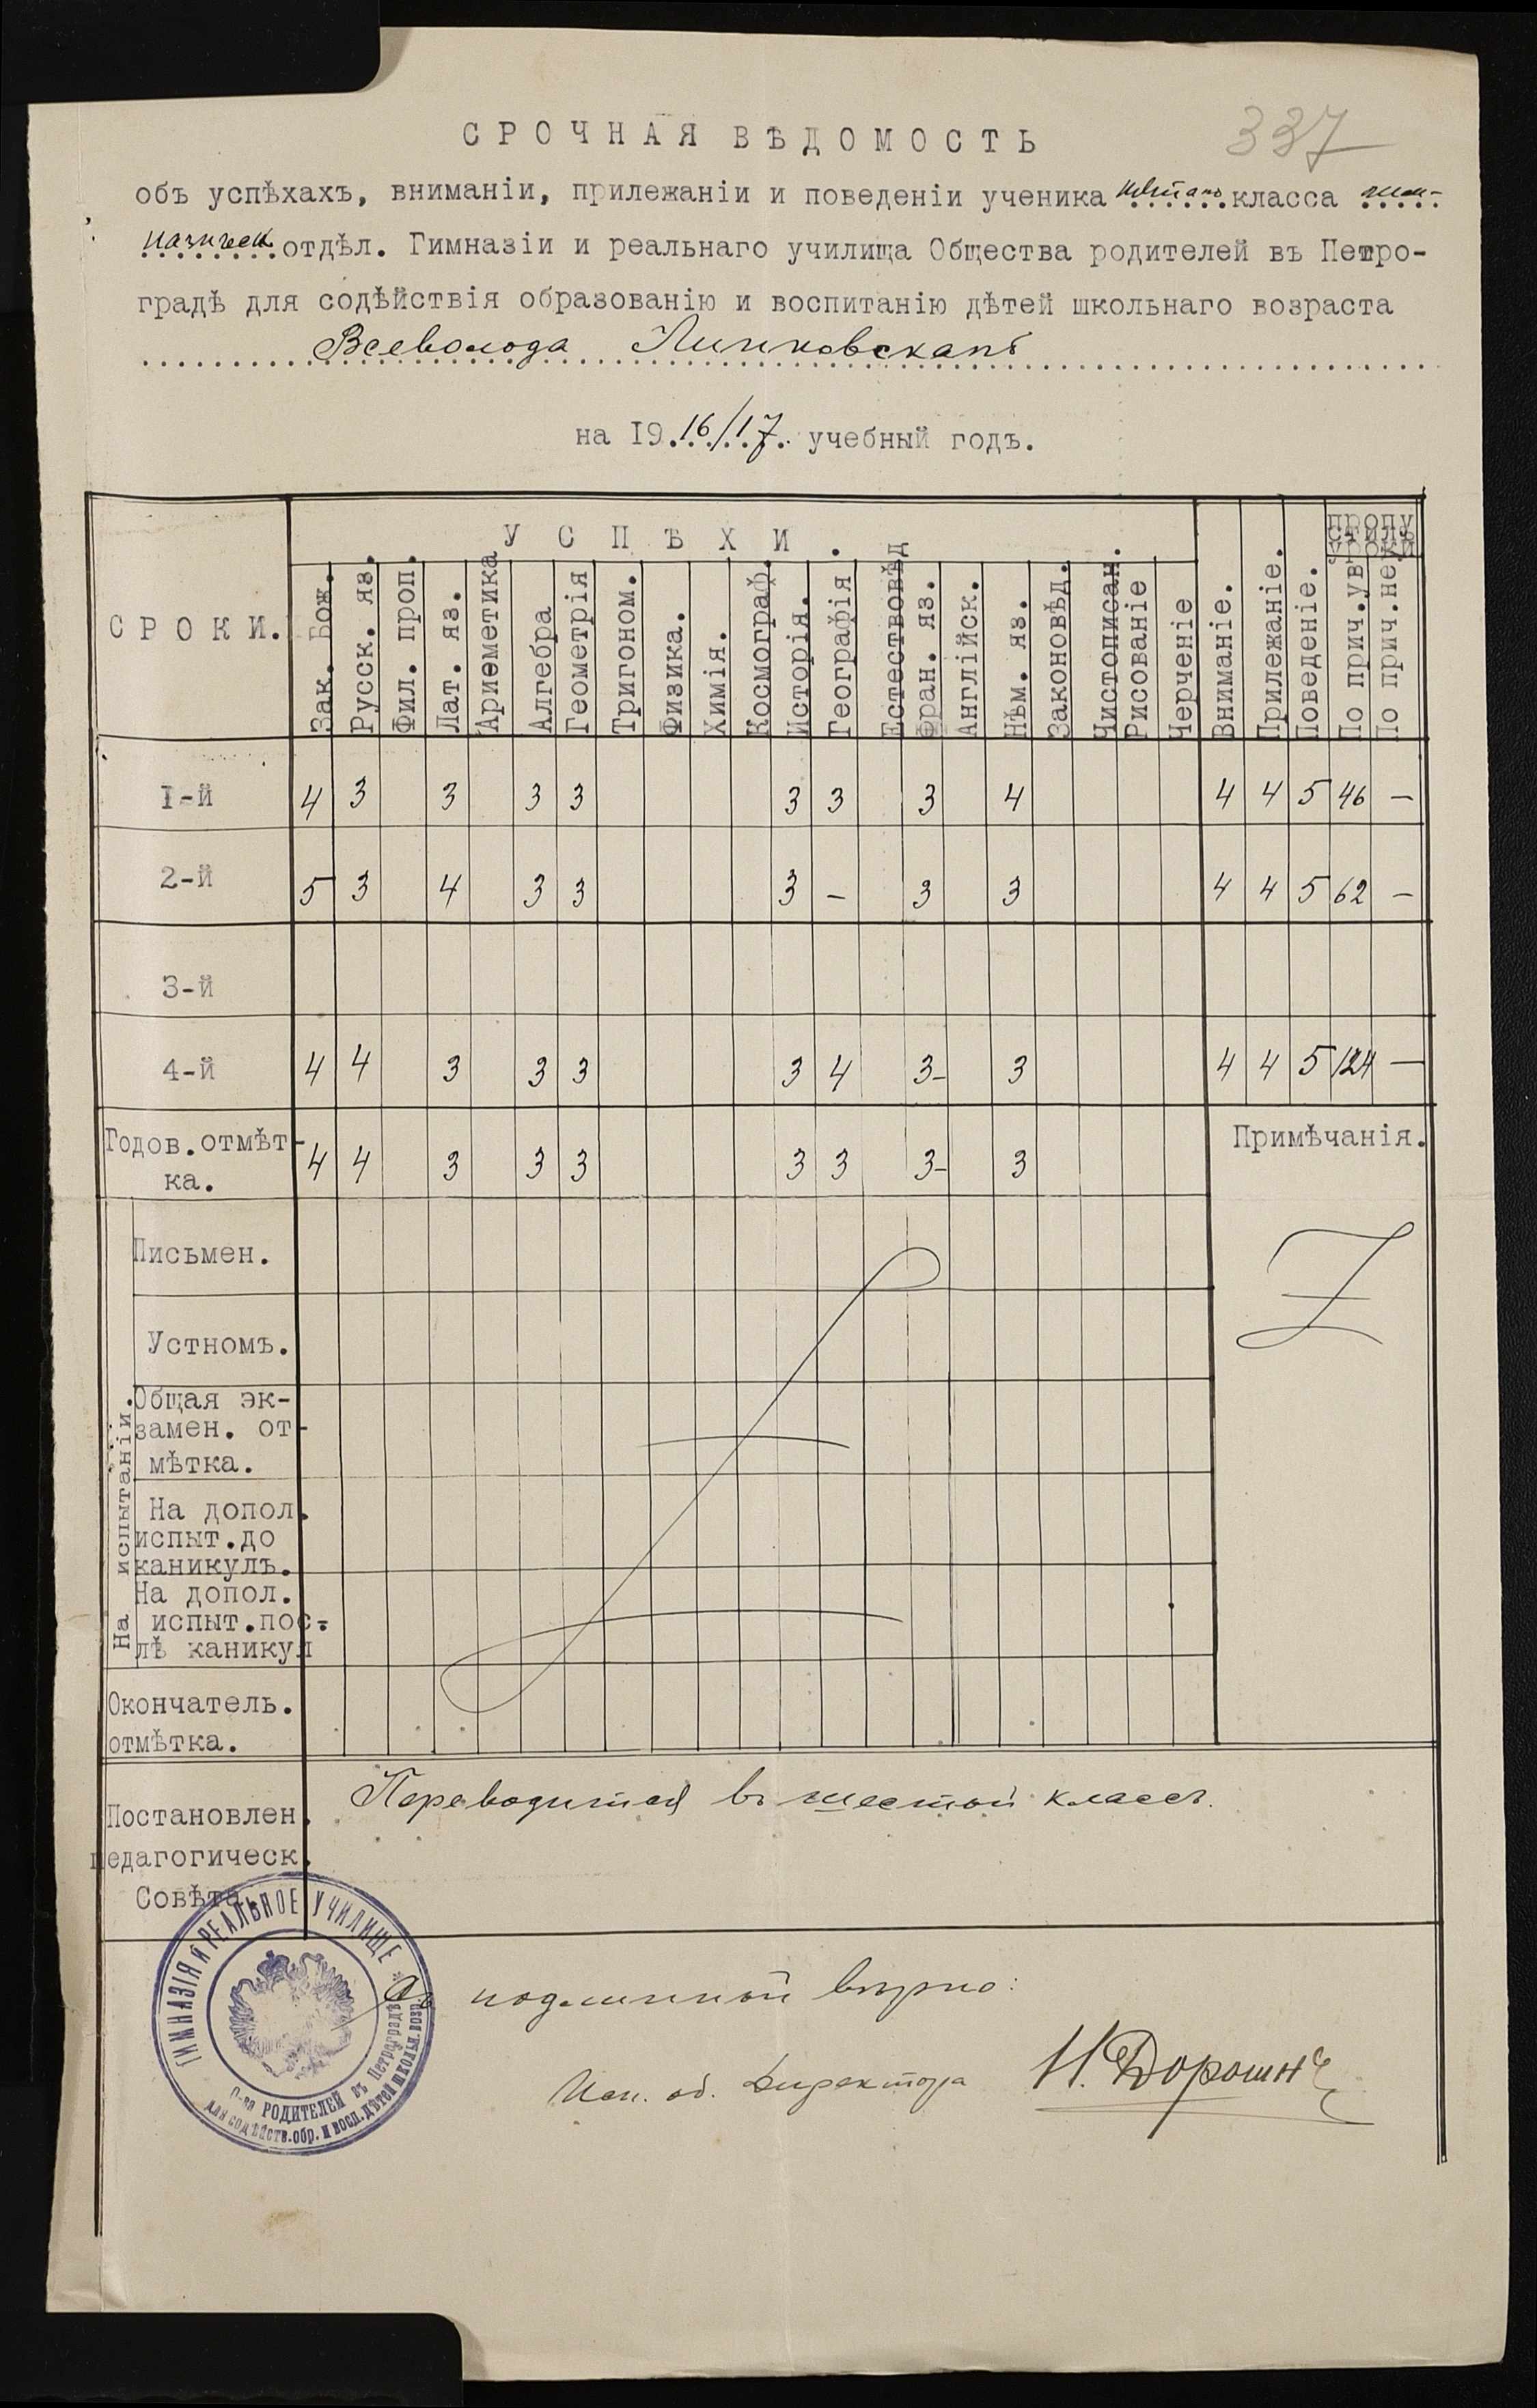 337
СРОЧНАЯ ВѢДОМОСТЬ
объ успѣхахъ, вниманіи, прилежаніи и поведеніи ученика пятаго класса гим-
назическ. отдѣл. Гимназіи и реальнаго училища Общества родителей въ Петро-
градѣ для содѣйствія образованію и воспитанію дѣтей школьнаго возраста
Всеволода
на 1916/17. учебный годъ.
СРОКИ. УСПѢХИ. пропу стилъ уроки
Зак. Бож. Русск. яз. Фил. проп. Лат. яз. Ариѳметика Алгебра Геометрія Тригоном. Физика. Химія. Космограф. Исторія. Географія Естествовѣд Фран. яз. Англійск. Нѣм. яз. Законовѣд. Чистописан. Рисованіе Черченіе Вниманіе. Прилежаніе. Поведеніе. По прич. ув По прич. не
1-й 4 3 3 3 3 3 3 3 4 4 4 5 46 —
2-й 5 3 4 3 3 3 – 3 3 4 4 5 62 —
3-й
4-й 4 4 3 3 3 3 4 3- 3 4 4 5 124 —
Годов. отмѣт-
ка. 4 4 3 3 3 3 3 3- 3
Примѣчанія.
На испытаніи.
Письмен.
Устномъ.
Общая эк-
замен. от-
мѣтка.
На допол.
испыт. до
каникулъ.
На допол.
испыт. пос-
лѣ каникул
Окончатель.
отмѣтка.
Постановлен.
педагогическ.
Совѣта.
Переводится въ шестой классъ.
Съ подлинной вѣрно:
Исп. об. Директора Н. Дорошн
ГИМНАЗІЯ И РЕАЛЬНОЕ УЧИЛИЩЕ
О-ва РОДИТЕЛЕЙ въ Петроградѣ
для содѣйств. обр. и восп. дѣтей школьн. возр.